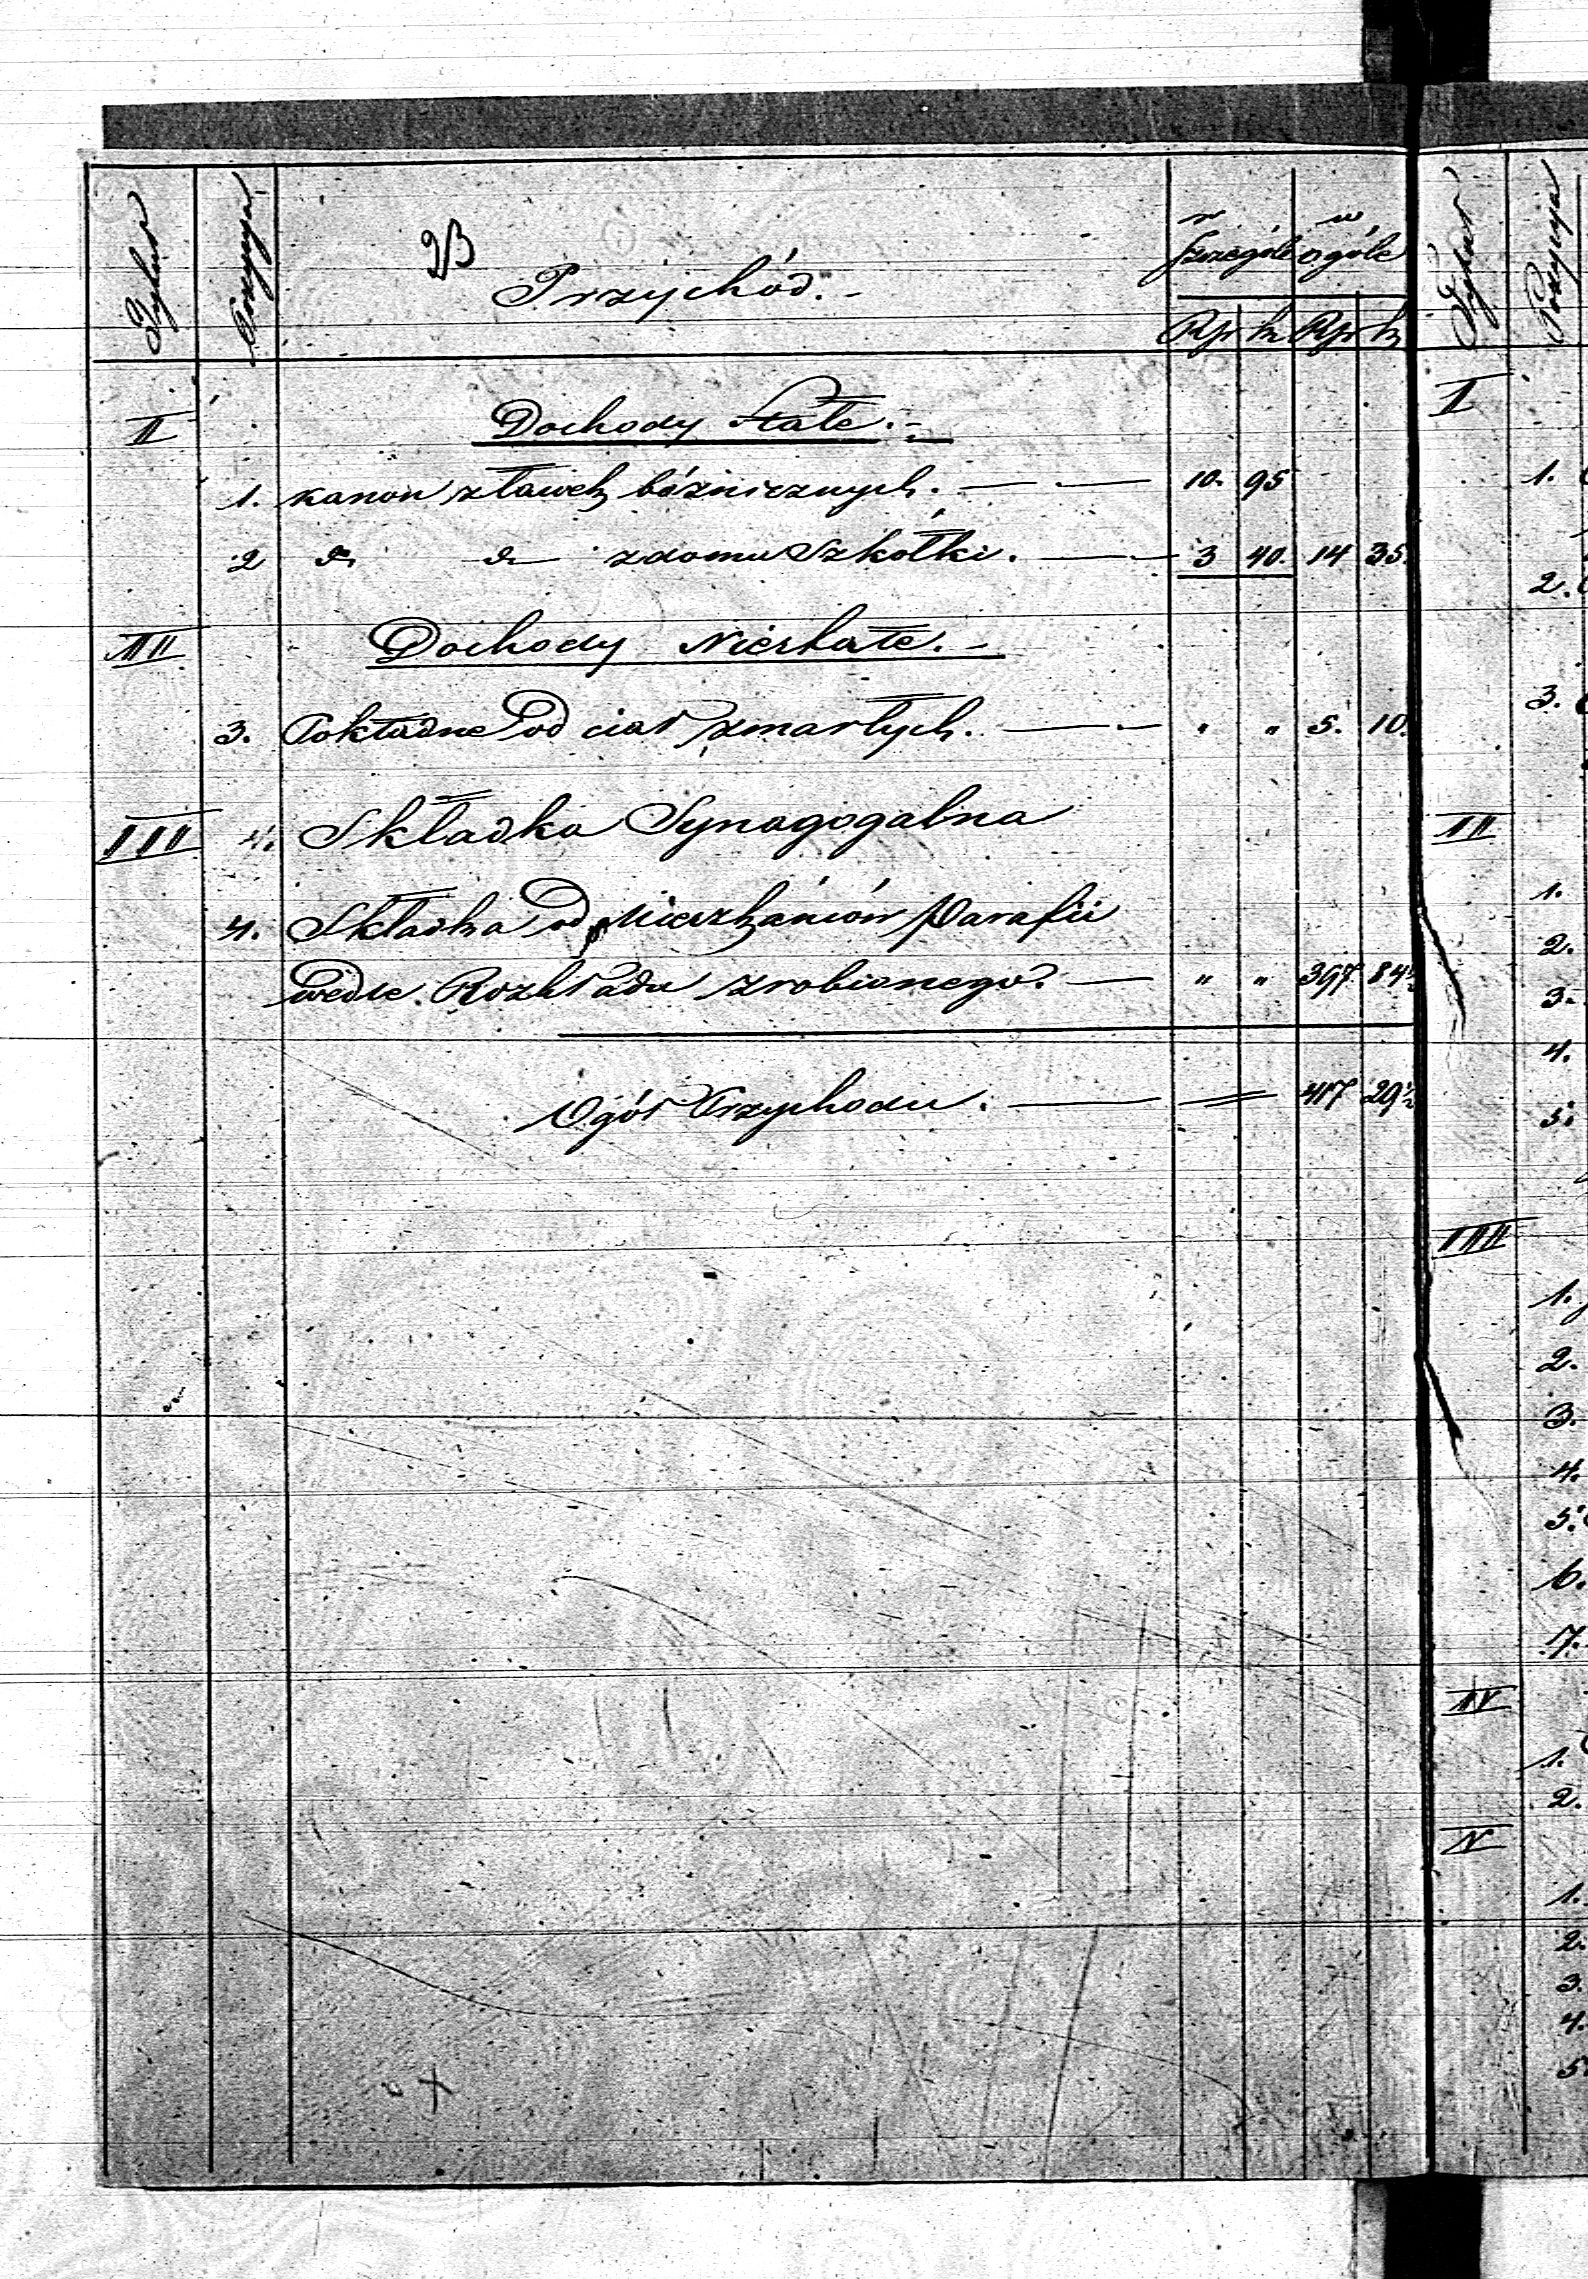 Tytuł Pozycya 23 Przychód.- w Szczególe w ogóle
Rsr k Rsr k
I Dochody Stałe.-
1. Kanon z ławek bóżniczych. 10. 95
2 do do z domu Szkołki. 3 40. 14 35.
II Dochody Niestałe.-
3. Pokładne od ciał zmarłych. " " 5. 10.
III 4. Składka Synagogalna
4. Składka od Mieszkańców Parafii
wedle Rozkładu zrobionego. " " 397 84½
Ogół Przychodu. 417 29½
Tytuł Pozycya
I
1.
2.
3.
II
1.
2.
3.
4.
5.
III
1.
2.
3.
4.
5.
6.
7.
IV
1.
2.
V
1.
2.
3.
4.
5.